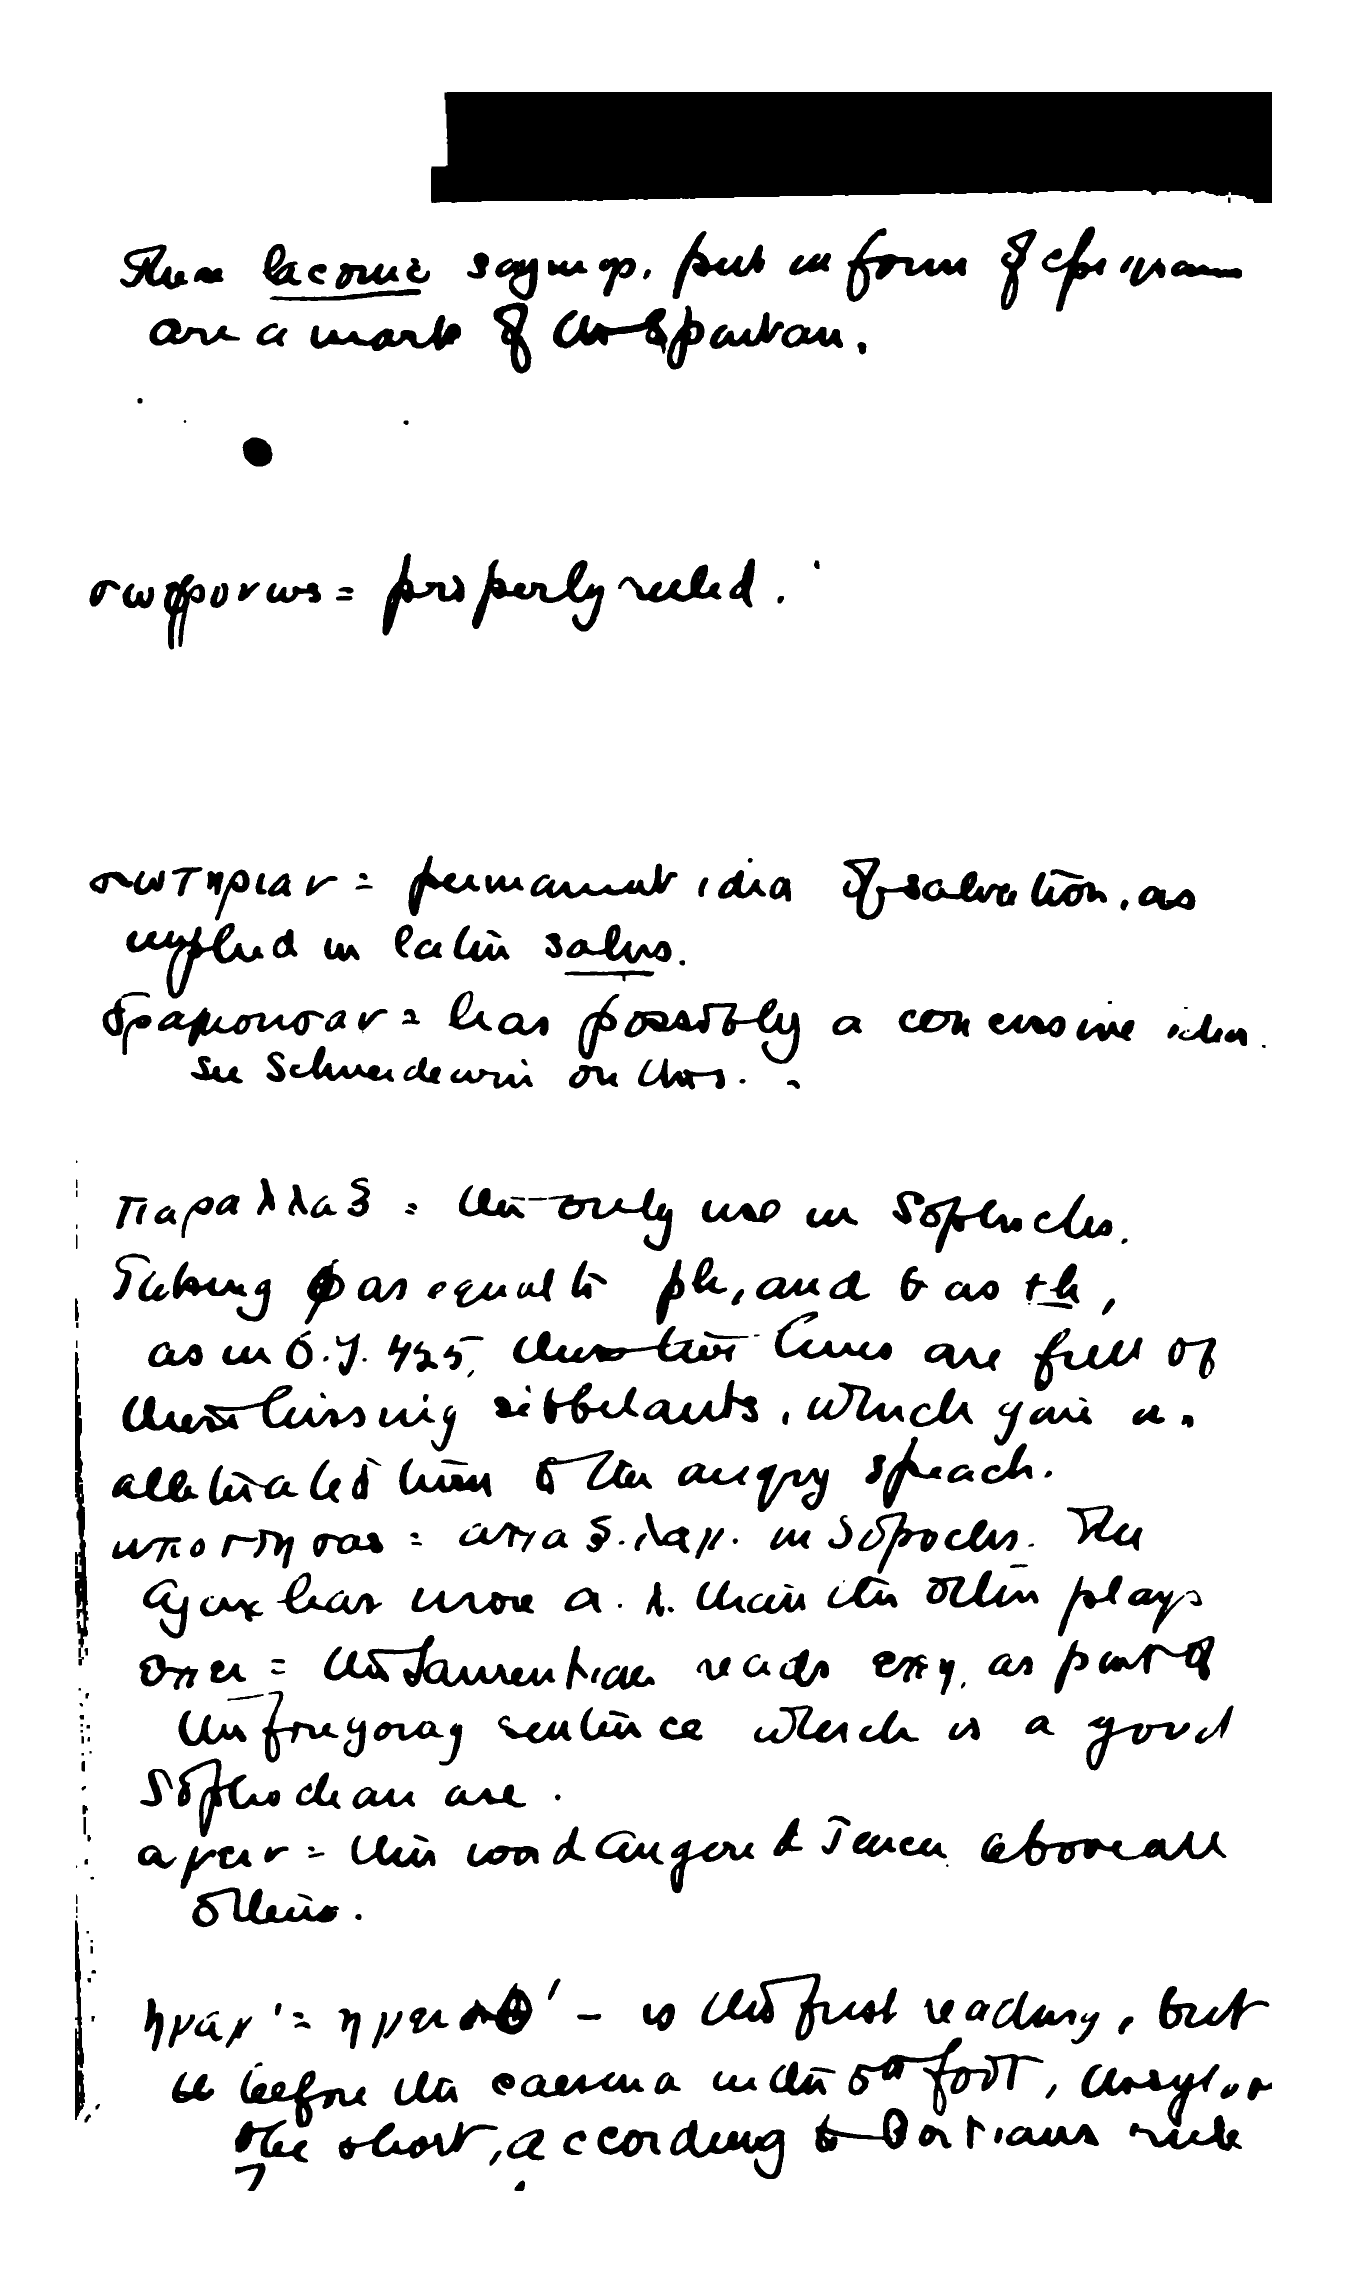 These laconic sayings, put in form of epigram
are a mark of the Spartan.
σωφρονως = properly ruled.
σωτηριαν = permanent idea of salvation, as
implied in latin salus.
δραμουσαν = has possibly a concessive idea.
see Schneidewin on this.
παραλλαξ = the only use in Sophocles.
Taking φ as equal to ph, and θ as th,
as in O.T. 425, these two lines are full of
these hissing sibbelants, which give an
alliterated hiss to the angry speech.
υποστησας = απαξ.λεγ. in Sophocles. The
Ajax has more α.λ. than the other plays
οπει = the Laurentian reads οπη, as part of
the foregoing sentence which is a good
Sophoclean use.
αγειν = this word angered Teucer above all
others.
= ημεισθ' – is the first reading, but
before the caesura in the 5th foot,
the short, according to Porsons rule